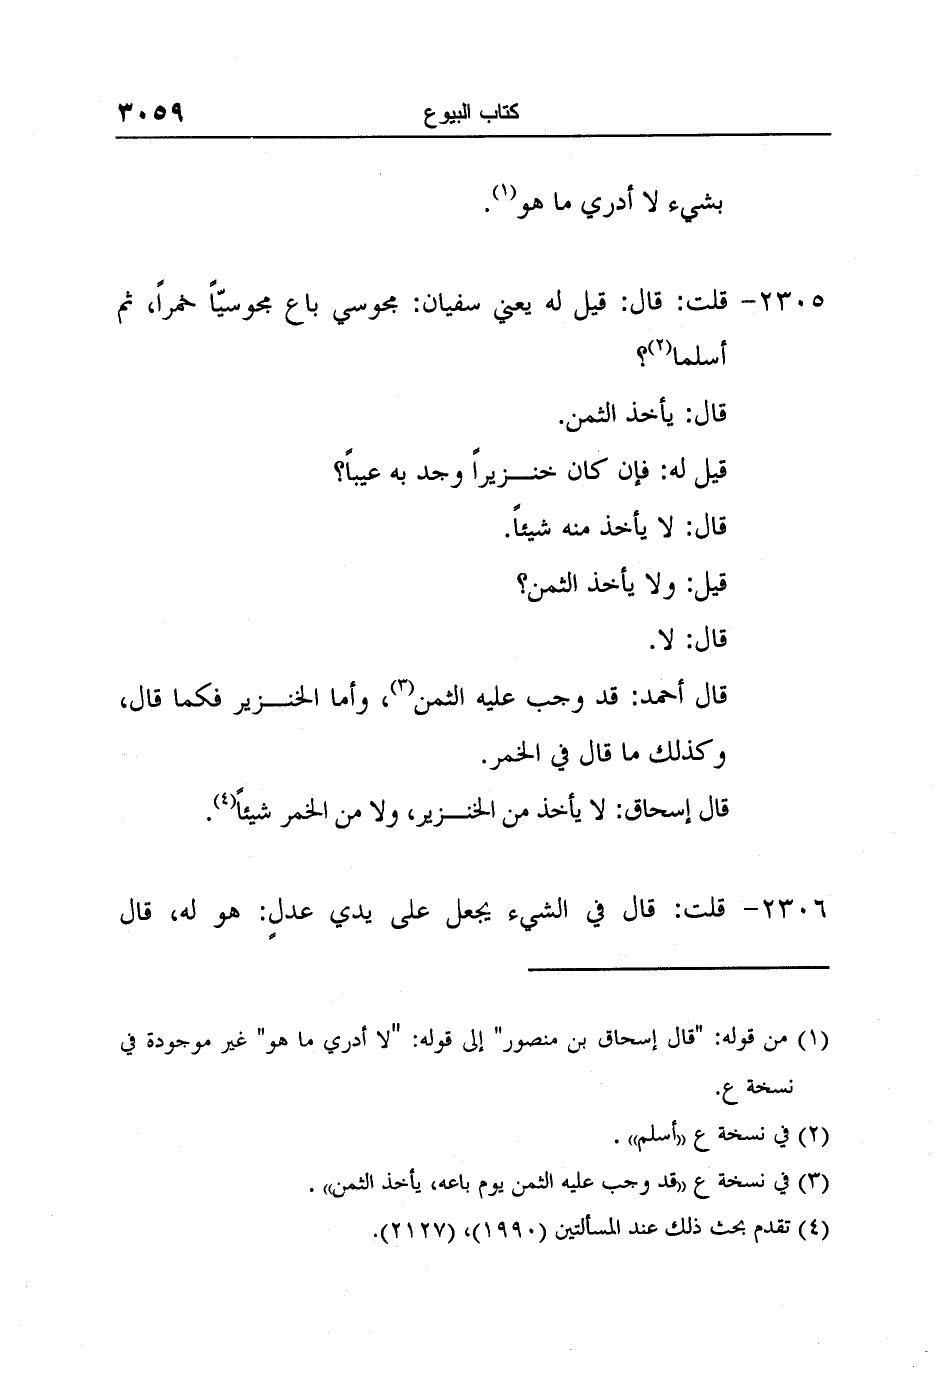 كتاب البيوع ٣٠٥٩
بشيء لا أدري ما هو(١).
٢٣٠٥- قلت: قال: قيل له يعني سفيان: مجوسي باع مجوسيّاً خمراً، ثم
أسلما(٢)؟
قال: يأخذ الثمن.
قيل له: فإن كان خنـــزيراً وجد به عيباً؟
قال: لا يأخذ منه شيئاً.
قيل: ولا يأخذ الثمن؟
قال: لا.
قال أحمد: قد وجب عليه الثمن(٣)، وأما الخنـــزير فكما قال،
وكذلك ما قال في الخمر.
قال إسحاق: لا يأخذ من الخنـــزير، ولا من الخمر شيئاً(٤).
٢٣٠٦- قلت: قال في الشيء يجعل على يدي عدلٍ: هو له، قال
(١) من قوله: "قال إسحاق بن منصور" إلى قوله: "لا أدري ما هو" غير موجودة في
نسخة ع.
(٢) في نسخة ع «أسلم» .
(٣) في نسخة ع «قد وجب عليه الثمن يوم باعه، يأخذ الثمن» .
(٤) تقدم بحث ذلك عند المسألتين (١٩٩٠)، (٢١٢٧).